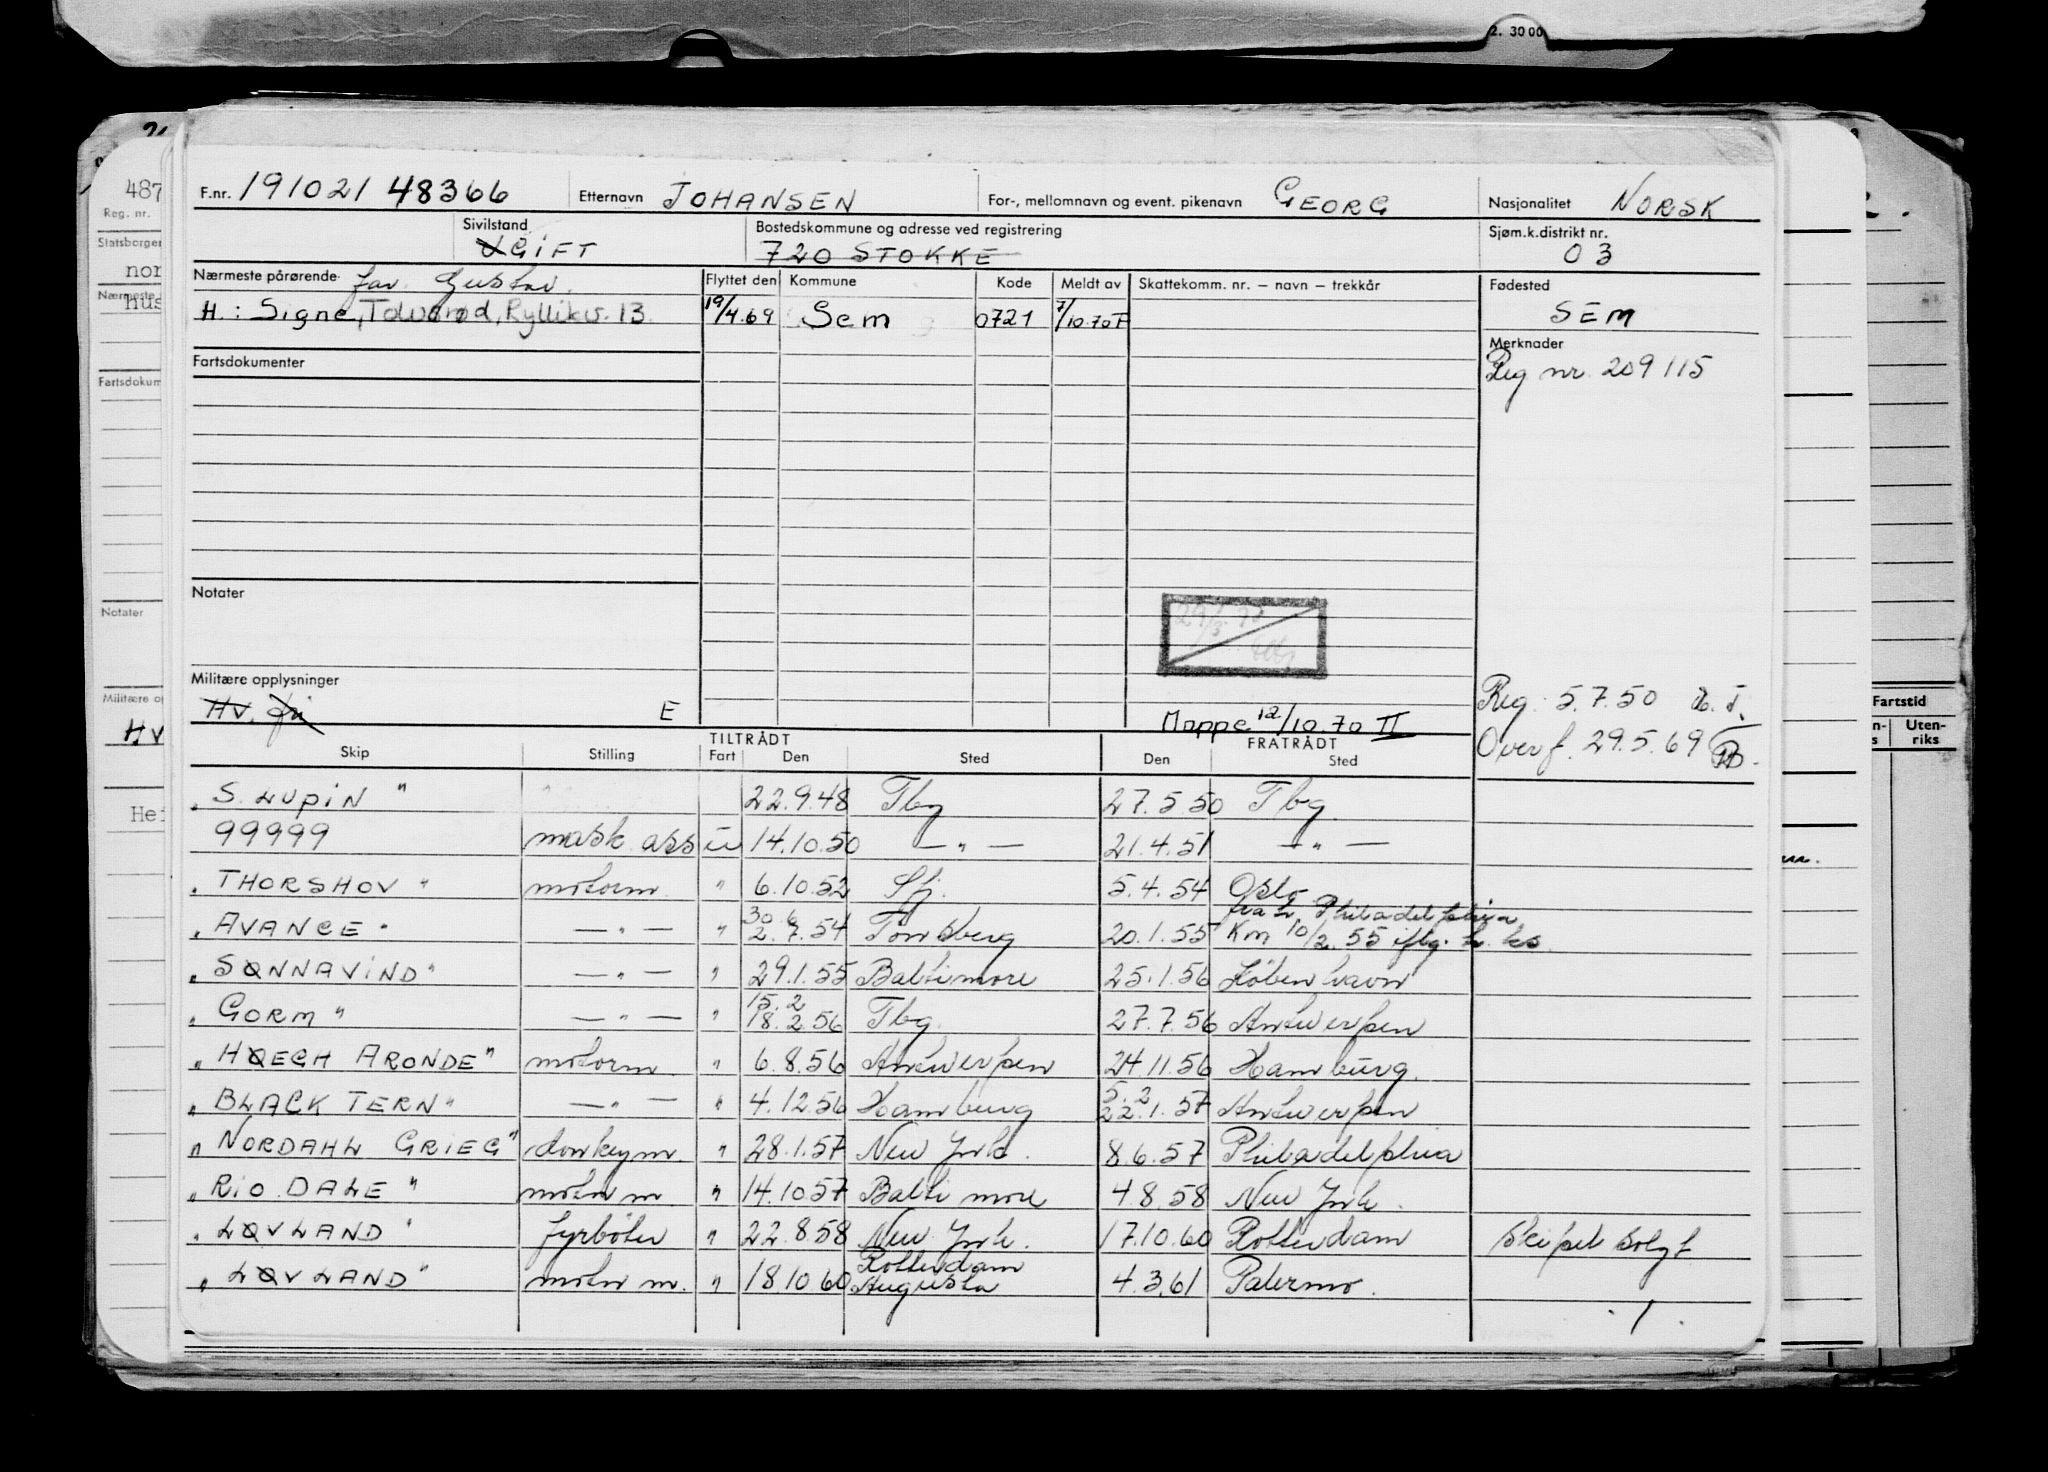 2. 30 00
487
Reg. nr.
Statsborger
nor
Nærmeste
hus
Fartsdokum
Notater
Militære op
HV
Hei
Fartstid
Uten-
riks
F.nr. 191021 48366 Etternavn JOHANSEN For-, mellomnavn og event. pikenavn GEORG Nasjonalitet NORSK
Sivilstand Bostedskommune og adresse ved registrering Sjøm.k.distrikt nr.
UGIFT 720 STOKKE 03
Nærmeste pårørende far Gustav. Flyttet den Kommune Kode Meldt av Skattekomm. nr. – navn – trekkår Fødested
H.: Signe, Tolvsrød, Ryllikvs. 13. 19/4.69 Sem 0721 7/10.70 F SEM
Fartsdokumenter Merknader
Reg nr. 209115
Notater
Militære opplysninger
HV. fri E Mappe 12/10.70 II
Reg. 5.7.50
Overf. 29.5.69
TILTRÅDT FRATRÅDT
Skip Stilling Fart Den Sted Den Sted
„ S. LUPIN " 22.9.48 Tbg 27.5.50 Tbg.
99999 mask. ass u 14.10.50 — „ — 21.4.51 — „ —
„ THORSHOV " motorm. " 6.10.52 Sfj. 5.4.54 Oslo
„ AVANCE " — „ — " 30.6 2.7.54 Tønsberg 20.1.55 fra h. Philadelphia
Km 10/2.55 iflg. h. ks.
„ SØNNAVIND" — „ — " 29.1.55 Baltimore 25.1.56 København
„ GORM " — „ — " 15.2 18.2.56 Tbg. 27.7.56 Antwerpen
„ HØEGH ARONDE" motorm. " 6.8.56 Antwerpen 24.11.56 Hamburg.
„ BLACK TERN" — „ — " 4.12.56 Hamburg 5.2 22.1.57 Antwerpen
„ NORDAHL GRIEG" donkeym. " 28.1.57 New York. 8.6.57 Philadelphia
„ RIO DALE " motor m " 14.10 57 Baltimore 4.8.58 New York.
„ LØVLAND " fyrbøter " 22.8.58 New York. 17.10.60 Rotterdam Skipet solgt
„ LØVLAND" motor m. " 18.10 60 Rotterdam Augusta 4.3.61 Palermo.